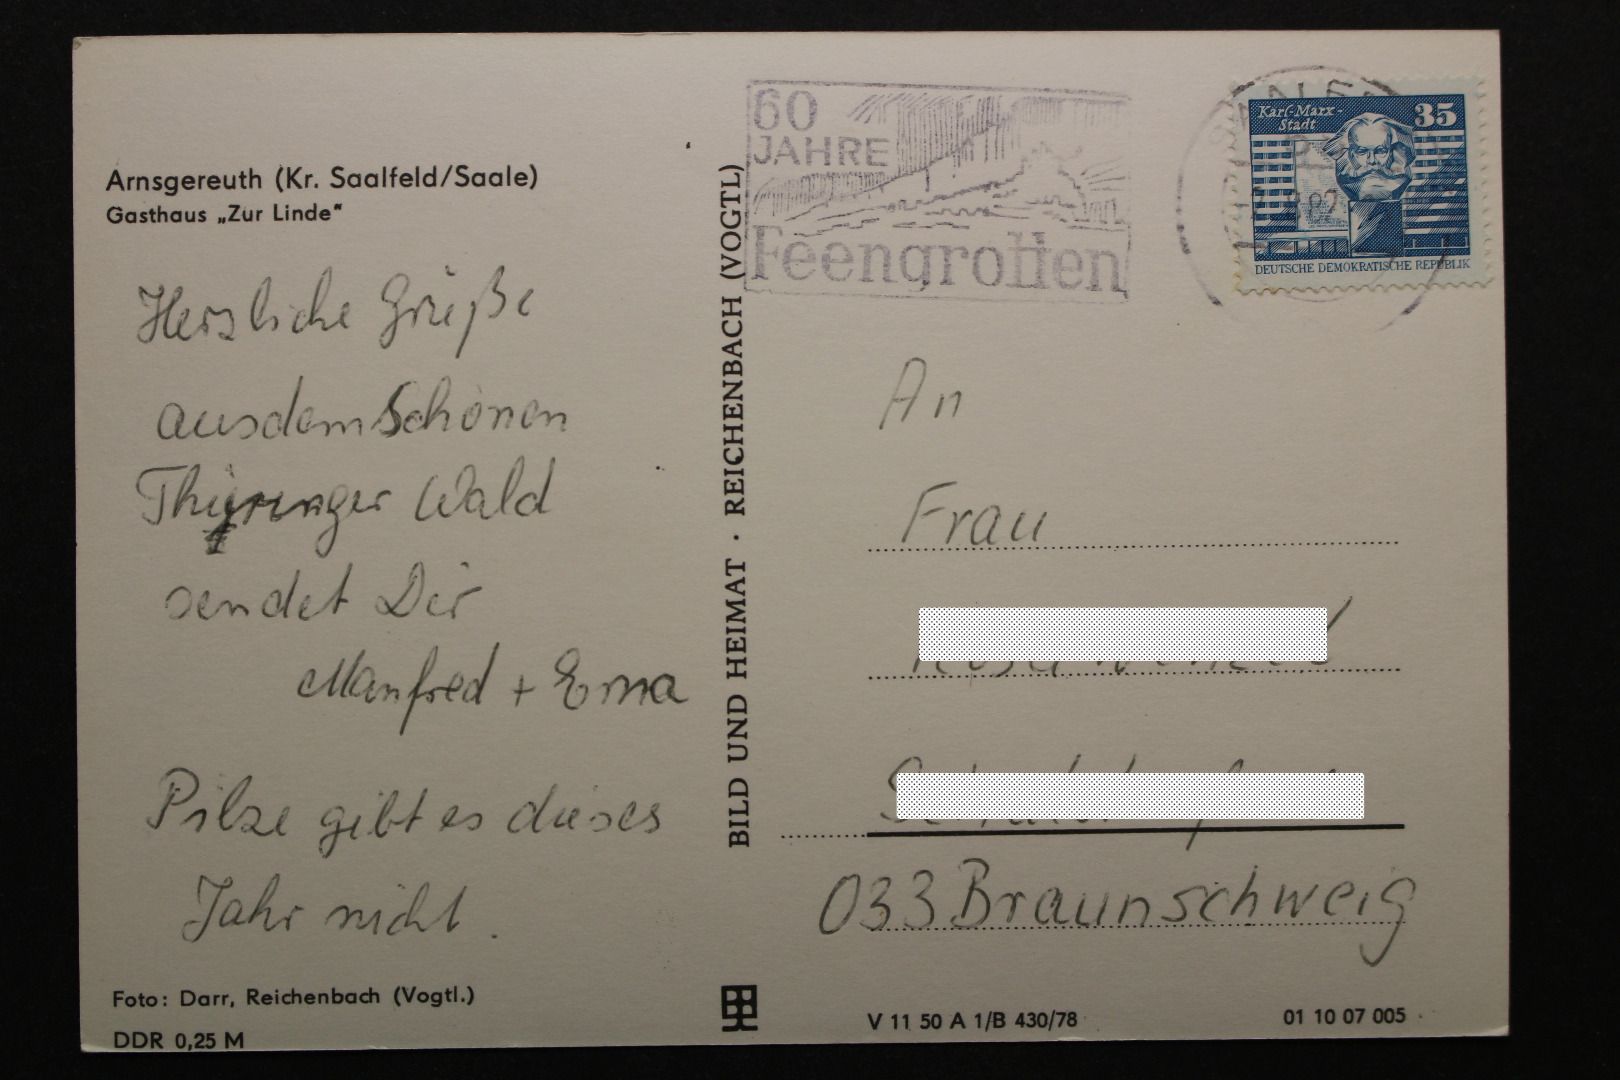 Arnsgereuth (Kr. Saalfeld/Saale)
Gasthaus „Zur Linde“
Herzliche Grüße
aus dem Schönen
Thüringer Wald
sendet Dir
Manfred + Erna
Pilze gibt es dieses
Jahr nicht.
Foto: Darr, Reichenbach (Vogtl.)
DDR 0,25 M
BILD UND HEIMAT · REICHENBACH (VOGTL)
60
JAHRE
Feengrotten
Karl-Marx-
Stadt
35
DEUTSCHE DEMOKRATISCHE REPUBLIK
An
Frau
033 Braunschweig
V 11 50 A 1/B 430/78
01 10 07 005